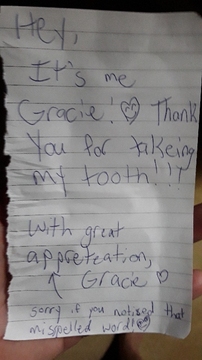 Hey,
It's me
Gracie! Thank
You for takeing
my tooth!!!
with great
appreteation,
Gracie
sorry if you notised that
misspelled word!